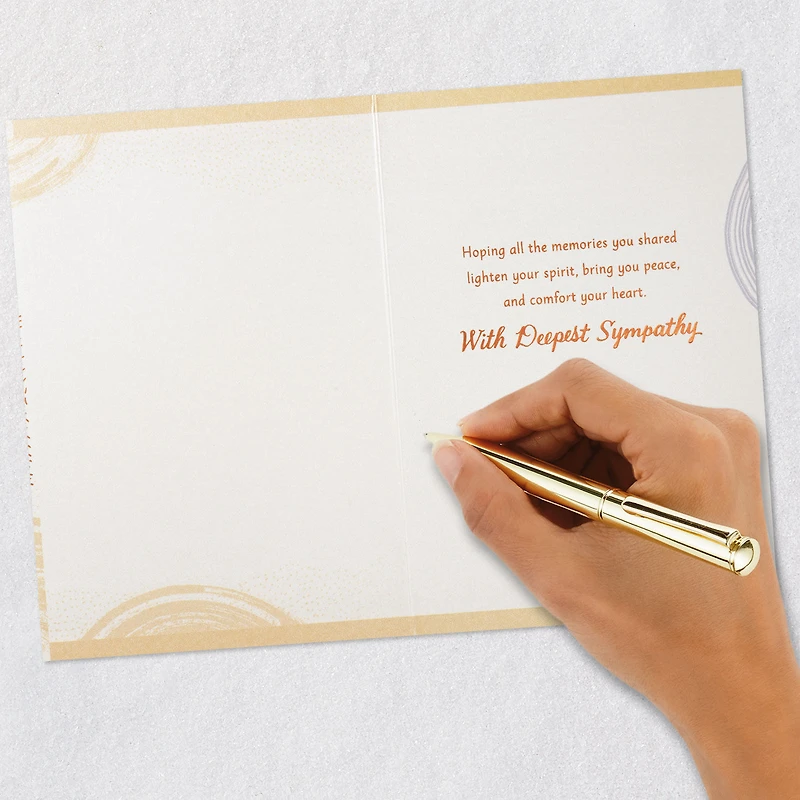 Hoping all the memories you shared
lighten your spirit, bring you peace,
and comfort your heart.
With Deepest Sympathy